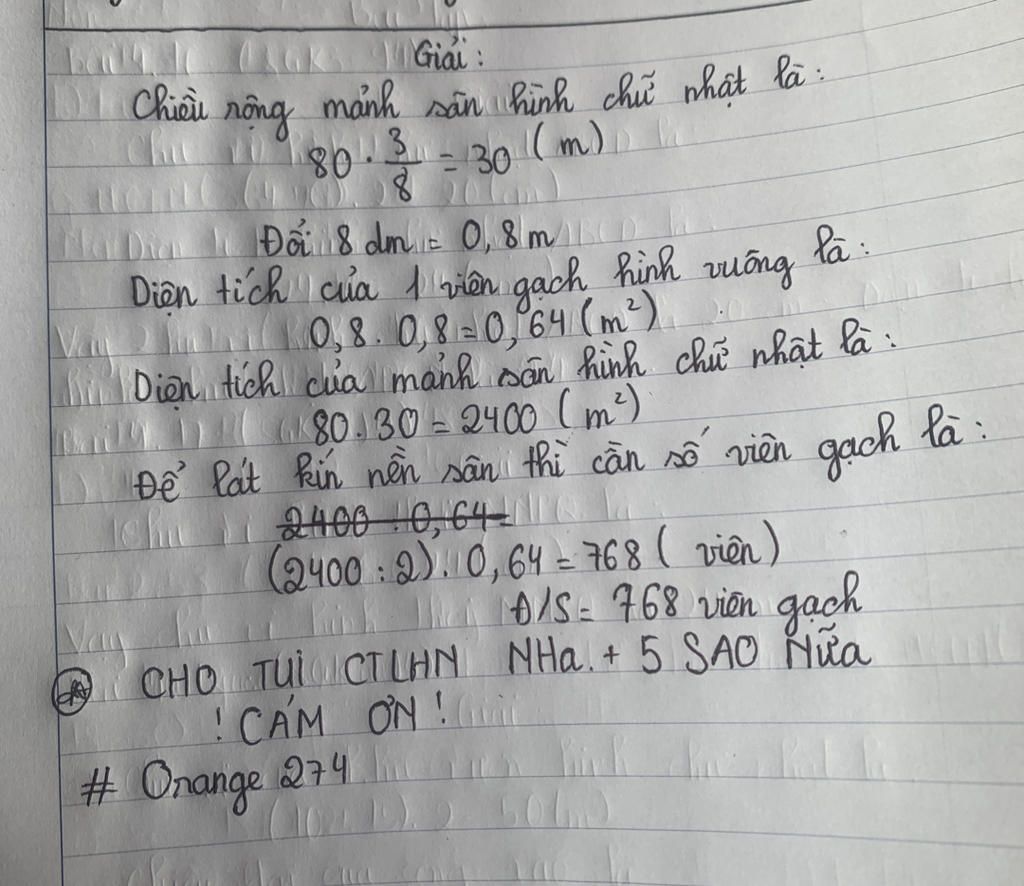 Giải:
Chiều rộng mảnh sân hình chữ nhật là:
80 . 3/8 = 30 (m)
Đổi 8 dm = 0,8m
Diện tích của 1 viên gạch hình vuông là:
0,8 . 0,8 = 0,64 (m²)
Diện tích của mảnh sân hình chữ nhật là:
80 . 30 = 2400 (m²)
Để lát kín nền sân thì cần số viên gạch là:
2400 : 0,64 =
(2400 : 2) . 0,64 = 768 (viên)
Đ/S = 768 viên gạch
CHO TUI CTLHN NHa. + 5 SAO NữA
! CÁM ƠN !
# Orange 274